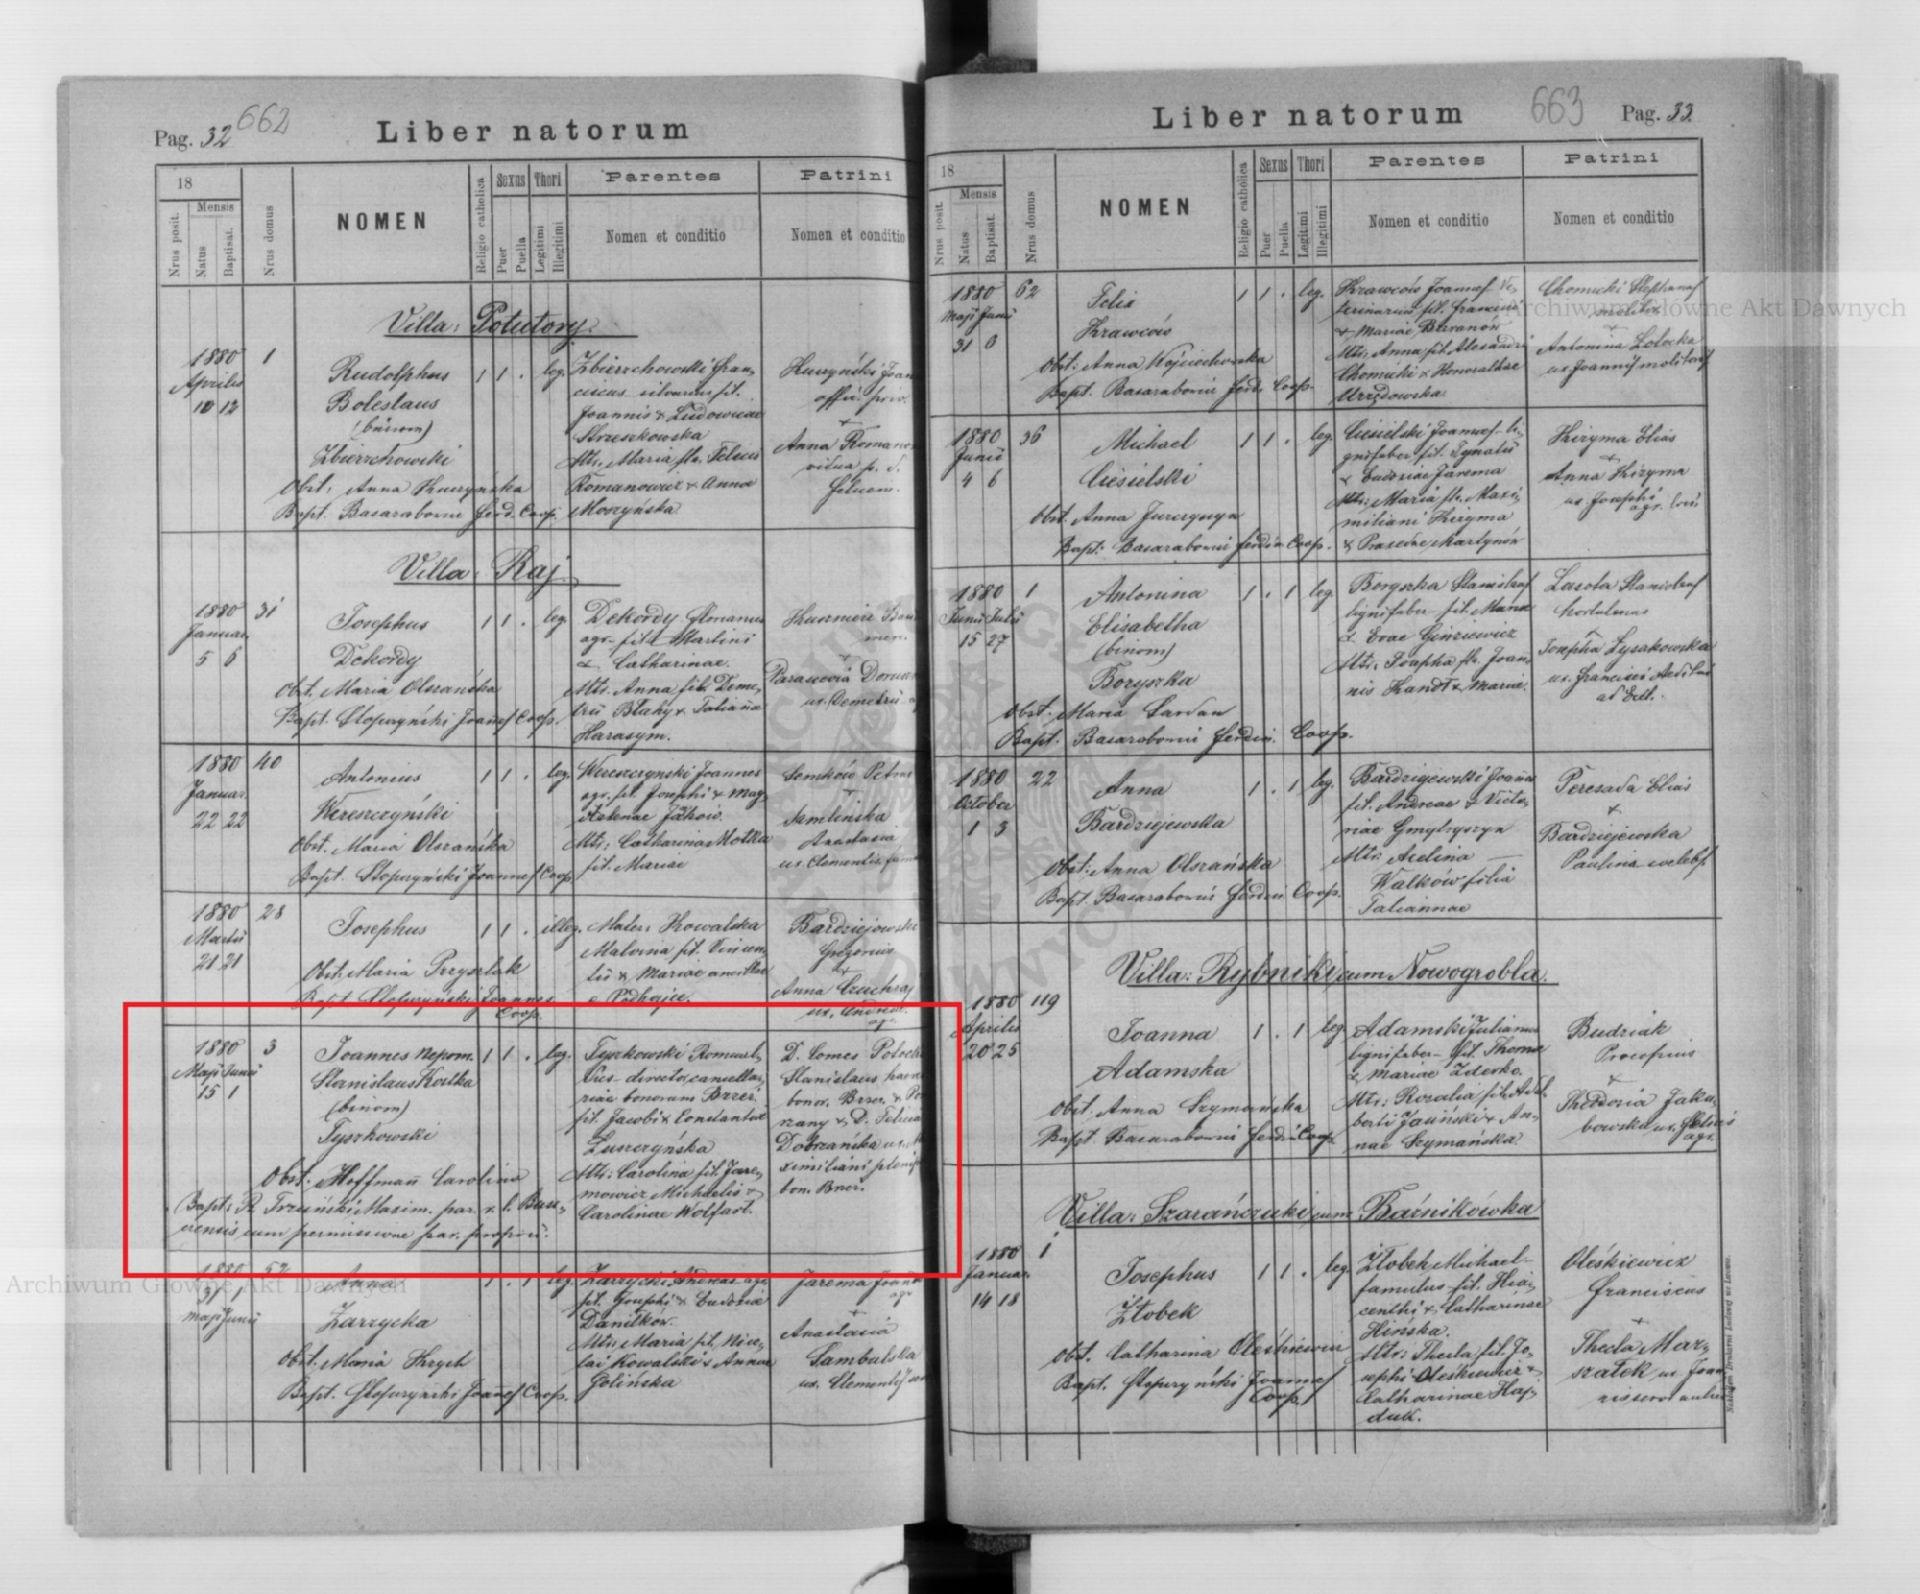 Pag. 32 662
Liber natorum
18
Nrus posit.
Mensis
Natus
Baptisat.
Nrus domus
NOMEN
Religio catholica
Sexus
Puer
Puella
Thori
Legitimi
Illegitimi
Parentes
Nomen et conditio
Patrini
Nomen et conditio
Villa: Potutory.
1880 1
Aprilis
10 12
Rudolphus
Boleslaus
(binom)
Zbierzchowski
Obst. Anna Huczyńska
Bapt. Basarabowic Ferd. Coop.
1 1 . leg.
Zbierzchowski Fran-
ciscus silvarius fil.
Joannis & Ludovicae
Strzeszkowska
Mtr. Maria fil. Felicis
Romanowicz & Anna
Moszyńska
Anna Roman
vidua p. d.
Villa: Raj
1880 31
Januar.
5 6
Josephus
Dekordy
Obst. Maria Olszańska
Bapt. Stopczyński Joannes Coop.
1 1 . leg.
Dekordy Florianus
agr. fil. Martini
& Catharinae.
Mtr. Anna fil. Deme-
trii Blahy & Tatianna
Harasym.
ux. Demetrii
1880 40
Januar.
22 22
Antonius
Wereszczyński
Obst. Maria Olszańska
Bapt. Stopczyński Joannes Coop.
1 1 . leg.
Wereszczynski Joannes
agr. fil. Josephi & Mag-
dalenae Jaków.
Mtr: Catharina Motka
fil. Mariae
Semków Petrus
Anastasia
ux. Clementis
1880 28
Martii
21 21
Josephus
Obst. Maria Przyszlak
Bapt. Stopczyński Joannes
Coop.
1 1 . illeg.
Mater: Kowalska
Malvina fil. Vincen-
tii & Mariae ancillae
e Podhajce.
Bardziejowski
Gregorius
&
Anna Czuchraj
ux. Andreae
agr.
1880 3
Maji Junii
15 1
Joannes Nepom.
Stanislaus Kostka
(binom)
Tyszkowski
Obst. Hoffmann Carolina
Bapt: R. Trzciński Maxim. par. r. l. Buce-
erensis cum permissione par. proprii.
1 1 . leg.
Tyszkowski Romuald,
Vice-director cancella-
riae bonorum Brzez.
fil. Jacobi & Constantiae
Zuszczyńska
Mtr: Carolina fil. Jare-
mowicz Michaelis &
Carolinae Wolfart.
D. Comes Potocki
Stanislaus haeres
bonor. Brzez. &
rzany & D. Felicia
Dobrzańska ux.
ximiliani plenip.
bon. Brzez.
1880 52
1
Maji Junii
Anna
Zarzycka
Obst. Maria Hrych
Bapt. Stopczyński Joannes Coop.
1 . 1 leg.
Zarzycki Andreas agr.
fil. Josephi & Eudoxiae
Danilków.
Mtr. Maria fil. Nico-
lai Kowalski & Annae
Golińska
Jarema Joannes
agr
&
Anastasia
Sambulska
ux. Clementis
Liber natorum
663 Pag. 33.
18
Nrus posit.
Mensis
Natus
Baptisat.
Nrus domus
NOMEN
Religio catholica
Sexus
Puer
Puella
Thori
Legitimi
Illegitimi
Parentes
Nomen et conditio
Patrini
Nomen et conditio
1880 62
Maji Junii
31 6
Felix
Krawców
Obst: Anna Wojciechowska
Bapt. Basarabowic Ferd. Coop.
1 1 . leg.
Krawców Joannes Ve-
terinarius fil. Francisci
& Mariae Baranów
Mtr. Anna fil. Alexandri
Chomicki & Honorathae
Urzędowska
Chomicki Stephanus
molitor
&
Antonina Łotocka
ux. Joannis molitoris
1880 36
Junii
4 6
Michael
Ciesielski
Obst. Anna Jurczyszyn
Bapt. Basarabowic Ferdin Coop.
1 1 . leg.
Ciesielski Joannes li-
gnifaber fil. Ignatii
& Eudoxiae Jarema
Mtr: Maria fil. Maxi-
miliani Hizyma
& Praxedae Martynów
Hizyma Elias
&
Anna Hizyma
ux. Josephi
agr.
1880 1
Junii Julii
15 27
Antonina
Elisabetha
(binom)
Boryszka
Obst. Maria Sardan
Bapt. Basarabowic Ferdin. Coop.
1 . 1 leg.
Boryszka Stanislaus
lignifaber fil.
& Evae Ginziewicz
Mtr. Josepha fil. Joan-
nis Handt & Mariae.
Lasota Stanislaus
hortulanus
&
Josepha Łysakowska
ux. Francisci
1880 22
October
1 3
Anna
Bardziejewska
Obst: Anna Olszańska
Bapt. Basarabowic Ferdin Coop.
1 . 1 leg.
Bardziejewski Joannes
fil. Andreae & Victo-
riae Gmytryszyn
Mtr. Acelina
Walków filia
Tatiannae
Peresada Elias
&
Bardziejewska
Paulina
Villa: Rybniki cum Nowogrobla.
1880 119
Aprilis
20 25
Joanna
Adamska
Obst. Anna Szymańska
Bapt. Basarabowic Ferdin Coop.
1 . 1 leg.
Adamski Julianus
lignifaber fil. Thomae
& Mariae Zderko.
Mtr: Rosalia fil. Adal-
berti Jasiński & An-
nae Szymańska.
Budziak
Procopius
&
Theodosia Jaku-
bowska ux.
agr.
Villa: Szarańczuki cum Baźnikówka
1880 1
Januar.
14 18
Josephus
Żłobek
Obst. Catharina Oleśkiewicz
Bapt. Stopczyński Joannes
Coop.
1 1 . leg.
Żłobek Michael
famulus fil. Hia-
centhi & Catharinae
Hińska.
Mtr: Thecla fil. Jo-
sephi Oleskiewicz &
Catharinae Haj-
duk.
Oleśkiewicz
Franciscus
&
Thecla Mar-
szałek ux. Joan-
Archiwum Główne Akt Dawnych
Archiwum Główne Akt Dawnych